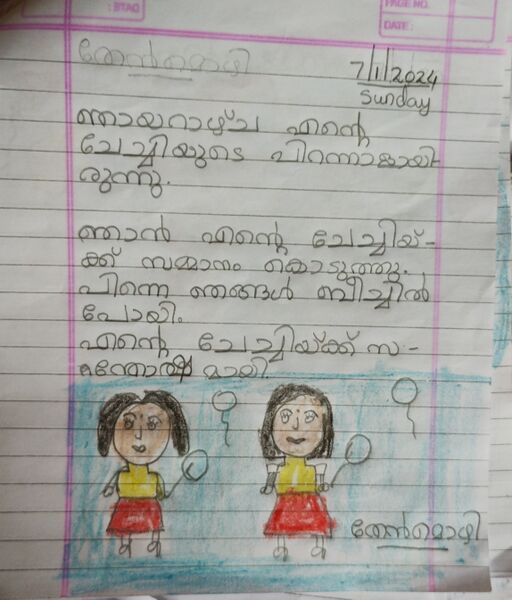 DATE:
PAGE NO.
DATE:
തേൻമൊഴി
7/1/2024
Sunday
ഞായറാഴ്ച എന്റെ
ചേച്ചിയുടെ പിറന്നാളായി-
രുന്നു.
ഞാൻ എന്റെ ചേച്ചിയ്-
ക്ക് സമ്മാനം കൊടുത്തു.
പിന്നെ ഞങ്ങൾ ബീച്ചിൽ
പോയി.
എന്റെ ചേച്ചിയ്ക്ക് സ-
ന്തോഷ മായി
തേൻമൊഴി